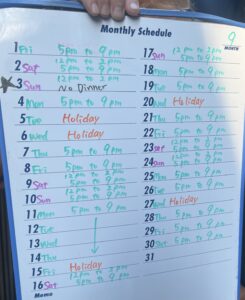 Monthly Schedule
9
MONTH
1 Fri 5pm to 9pm
2 Sat 5pm to 9pm
3 Sun 12pm to 2pm
No Dinner
4 Mon 5pm to 9pm
5 Tue Holiday
6 Wed Holiday
7 Thu 5pm to 9pm
8 Fri 5pm to 9pm
9 Sat 12pm to 2pm
5pm to 9pm
10 Sun 12pm to 2pm
5pm to 9pm
11 Mon 5pm to 9pm
12 Tue
13 Wed
14 Thu
15 Fri Holiday
16 Sat 5pm to 9pm
Memo
17 Sun 12pm to 2pm
5pm to 9pm
18 Mon 5pm to 9pm
19 Tue 5pm to 9pm
20 Wed Holiday
21 Thu 5pm to 9pm
22 Fri 5pm to 9pm
23 Sat 12pm to 2pm
5pm to 9pm
24 Sun 12pm to 2pm
5pm to 9pm
25 Mon 5pm to 9pm
26 Tue 5pm to 9pm
27 Wed Holiday
28 Thu 5pm to 9pm
29 Fri 5pm to 9pm
30 Sat 5pm to 9pm
31